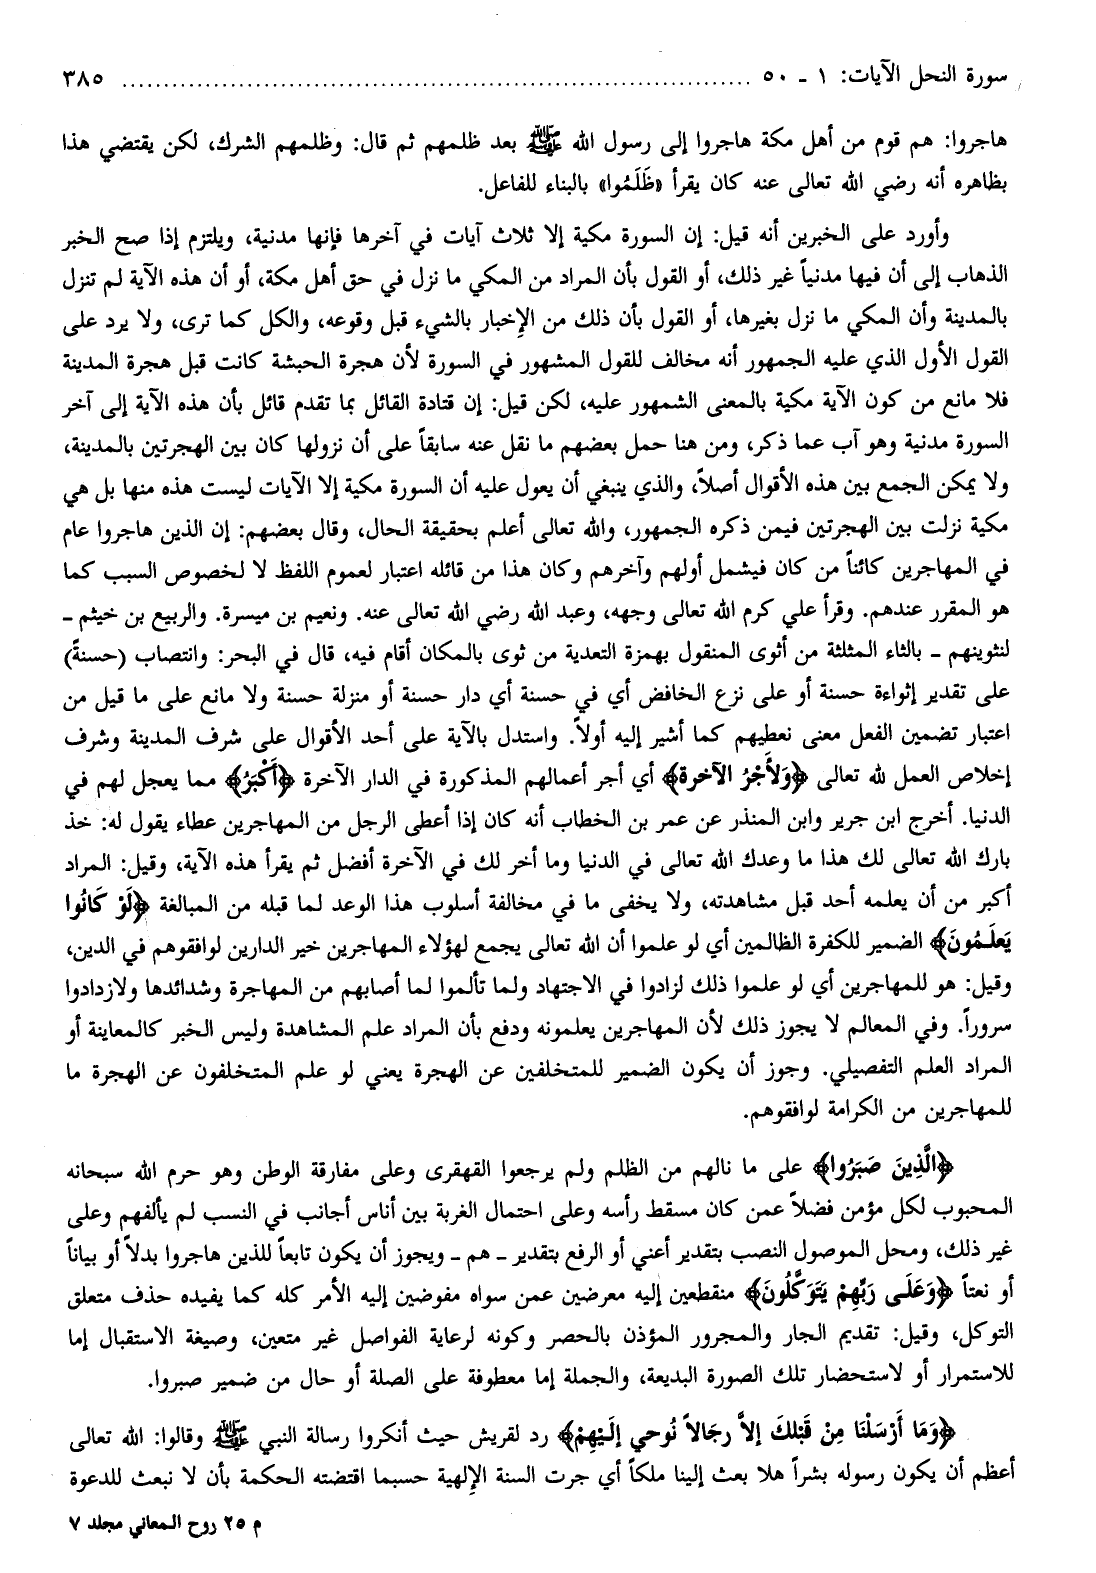 سورة النحل الآيات: ١ ـ ٥٠ .......................................................................... ٣٨٥
هاجروا: هم قوم من أهل مكة هاجروا إلى رسول الله ﷺ بعد ظلمهم ثم قال: وظلمهم الشرك، لكن يقتضي هذا
بظاهره أنه رضي الله تعالى عنه كان يقرأ «ظَلَمُوا» بالبناء للفاعل.
وأورد على الخبرين أنه قيل: إن السورة مكية إلا ثلاث آيات في آخرها فإنها مدنية، ويلتزم إذا صح الخبر
الذهاب إلى أن فيها مدنياً غير ذلك، أو القول بأن المراد من المكي ما نزل في حق أهل مكة، أو أن هذه الآية لم تنزل
بالمدينة وأن المكي ما نزل بغيرها، أو القول بأن ذلك من الإخبار بالشيء قبل وقوعه، والكل كما ترى، ولا يرد على
القول الأول الذي عليه الجمهور أنه مخالف للقول المشهور في السورة لأن هجرة الحبشة كانت قبل هجرة المدينة
فلا مانع من كون الآية مكية بالمعنى الشمهور عليه، لكن قيل: إن قتادة القائل بما تقدم قائل بأن هذه الآية إلى آخر
السورة مدنية وهو آب عما ذكر، ومن هنا حمل بعضهم ما نقل عنه سابقاً على أن نزولها كان بين الهجرتين بالمدينة،
ولا يمكن الجمع بين هذه الأقوال أصلاً، والذي ينبغي أن يعول عليه أن السورة مكية إلا الآيات ليست هذه منها بل هي
مكية نزلت بين الهجرتين فيمن ذكره الجمهور، والله تعالى أعلم بحقيقة الحال، وقال بعضهم: إن الذين هاجروا عام
في المهاجرين كائناً من كان فيشمل أولهم وآخرهم وكان هذا من قائله اعتبار لعموم اللفظ لا لخصوص السبب كما
هو المقرر عندهم. وقرأ علي كرم الله تعالى وجهه، وعبد الله رضي الله تعالى عنه. ونعيم بن ميسرة. والربيع بن خيثم ـ
لنثوينهم ـ بالثاء المثلثة من أثوى المنقول بهمزة التعدية من ثوى بالمكان أقام فيه، قال في البحر: وانتصاب (حسنةً)
على تقدير إثواءة حسنة أو على نزع الخافض أي في حسنة أي دار حسنة أو منزلة حسنة ولا مانع على ما قيل من
اعتبار تضمين الفعل معنى نعطيهم كما أشير إليه أولاً. واستدل بالآية على أحد الأقوال على شرف المدينة وشرف
إخلاص العمل لله تعالى ﴿وَلأَجْرُ الآخرة﴾ أي أجر أعمالهم المذكورة في الدار الآخرة ﴿أَكْبَرُ﴾ مما يعجل لهم في
الدنيا. أخرج ابن جرير وابن المنذر عن عمر بن الخطاب أنه كان إذا أعطى الرجل من المهاجرين عطاء يقول له: خذ
بارك الله تعالى لك هذا ما وعدك الله تعالى في الدنيا وما أخر لك في الآخرة أفضل ثم يقرأ هذه الآية، وقيل: المراد
أكبر من أن يعلمه أحد قبل مشاهدته، ولا يخفى ما في مخالفة أسلوب هذا الوعد لما قبله من المبالغة ﴿لَوْ كَانُوا
يَعلَـمُونَ﴾ الضمير للكفرة الظالمين أي لو علموا أن الله تعالى يجمع لهؤلاء المهاجرين خير الدارين لوافقوهم في الدين،
وقيل: هو للمهاجرين أي لو علموا ذلك لزادوا في الاجتهاد ولما تألموا لما أصابهم من المهاجرة وشدائدها ولازدادوا
سروراً. وفي المعالم لا يجوز ذلك لأن المهاجرين يعلمونه ودفع بأن المراد علم المشاهدة وليس الخبر كالمعاينة أو
المراد العلم التفصيلي. وجوز أن يكون الضمير للمتخلفين عن الهجرة يعني لو علم المتخلفون عن الهجرة ما
للمهاجرين من الكرامة لوافقوهم.
﴿الَّذِينَ صَبَرُوا﴾ على ما نالهم من الظلم ولم يرجعوا القهقرى وعلى مفارقة الوطن وهو حرم الله سبحانه
المحبوب لكل مؤمن فضلاً عمن كان مسقط رأسه وعلى احتمال الغربة بين أناس أجانب في النسب لم يألفهم وعلى
غير ذلك، ومحل الموصول النصب بتقدير أعني أو الرفع بتقدير ـ هم ـ ويجوز أن يكون تابعاً للذين هاجروا بدلاً أو بياناً
أو نعتاً ﴿وَعَلَى رَبِّهِمْ يَتَوَكَّلُونَ﴾ منقطعين إليه معرضين عمن سواه مفوضين إليه الأمر كله كما يفيده حذف متعلق
التوكل، وقيل: تقديم الجار والمجرور المؤذن بالحصر وكونه لرعاية الفواصل غير متعين، وصيغة الاستقبال إما
للاستمرار أو لاستحضار تلك الصورة البديعة، والجملة إما معطوفة على الصلة أو حال من ضمير صبروا.
﴿وَمَا أَرْسَلْنَا مِنْ قَبْلكَ إلاَّ رِجَالاً نُوحي إلَيْهِمْ﴾ رد لقريش حيث أنكروا رسالة النبي ﷺ وقالوا: الله تعالى
أعظم أن يكون رسوله بشراً هلا بعث إلينا ملكاً أي جرت السنة الإلهية حسبما اقتضته الحكمة بأن لا نبعث للدعوة
م ٢٥ روح المعاني مجلد ٧